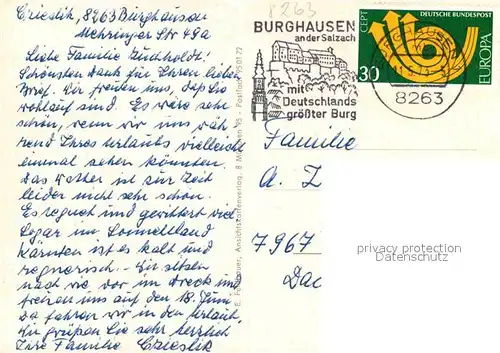 Czieslik, 8263 Burghausen
Mehringer Str 49a
Liebe Familie
Schönsten Dank für Ihren lieben
Brief. Wir freuen uns, daß Sie
wohlauf sind. Es wäre sehr
schön, wenn wir uns wäh
rend Ihres Urlaubs vielleicht
einmal sehen könnten.
Das Wetter ist zur Zeit
leider nicht sehr schön.
Es regnet und gewittert viel
Sogar im Sonnenland
Kärnten ist es kalt und
regnerisch. Wir sitzen
nach wie vor im Dreck und
freuen uns auf den 18. Juni
Da fahren wir in den Urlaub.
Wir grüßen Sie sehr herzlich
Ihre Familie Czieslik
Ansichtskartenverlag, 8 München
8263
BURGHAUSEN
an der Salzach
mit
Deutschlands
größter Burg
CEPT
DEUTSCHE BUNDESPOST
30
EUROPA
BURGHAUSEN
8263
Familie
A. Z
7967
Dac
privacy protection
Datenschutz